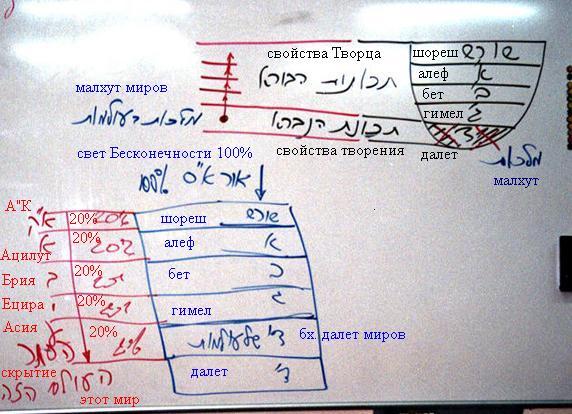 свойства Творца שורש שורש
תכונות הבורא алеф א
малхут миров бет ב
מלכות העולמות гимел ג
תכונת הנברא ד'
свойства творения далет מלכות
малхут
свет Бесконечности 100%
100% אור א"ס
А"К א"ק 20% 20% шореш שורש
א 20% 20% алеф א
Ацилут
Брия ב 20% бет ב
Ецира 20% гимел ג
Асия 20% ד' של עולמות бх. далет миров
скрытие העלם далет ד'
העולם הזה
этот мир